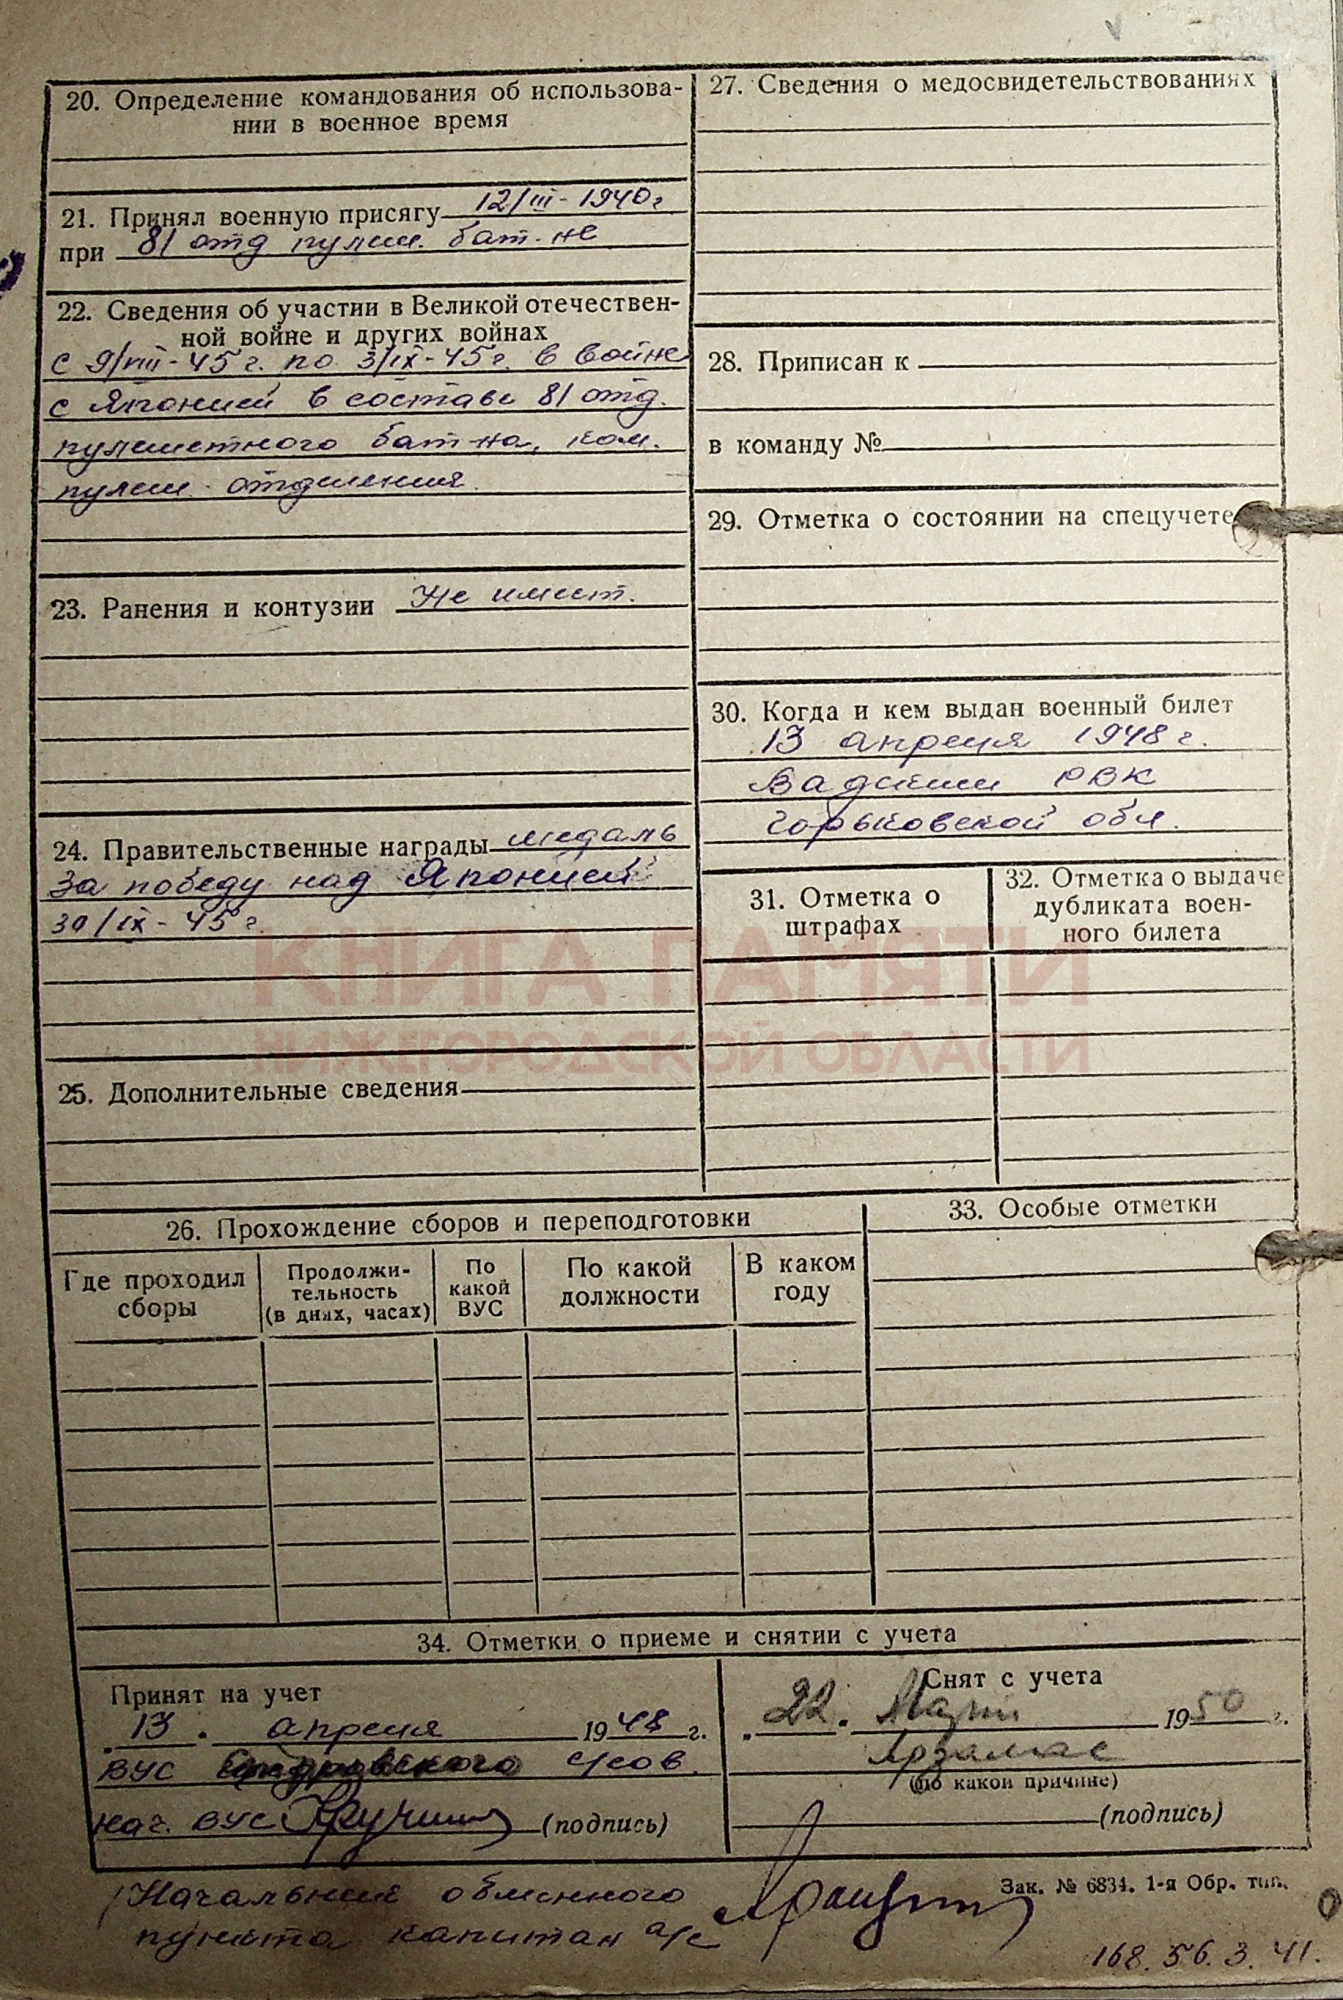 20. Определение командования об использова-
нии в военное время
21. Принял военную присягу 12/III-1940 г.
при 81 отд. пулем. бат-не
22. Сведения об участии в Великой отечествен-
ной войне и других войнах
с 9/VIII-45 г. по 3/IX-45 г. в войне
с Японией в составе 81 отд.
пулеметного бат-на, ком.
пулем. отделения.
23. Ранения и контузии Не имеет.
24. Правительственные награды медаль
За победу над Японией
30/IX-45 г.
25. Дополнительные сведения
27. Сведения о медосвидетельствованиях
28. Приписан к
в команду №
29. Отметка о состоянии на спецучете
30. Когда и кем выдан военный билет
13 апреля 1948 г.
Вадским РВК
Горьковской обл.
31. Отметка о
штрафах
32. Отметка о выдаче
дубликата воен-
ного билета
КНИГА ПАМЯТИ
НИЖЕГОРОДСКОЙ ОБЛАСТИ
26. Прохождение сборов и переподготовки
Где проходил
сборы
Продолжи-
тельность
(в днях, часах)
По
какой
ВУС
По какой
должности
В каком
году
33. Особые отметки
34. Отметки о приеме и снятии с учета
Принят на учет
13 апреля 1948 г.
ВУС с/сов.
нач. ВУС (подпись)
Снят с учета
22 1950 г.
Арзамас
(по какой причине)
(подпись)
Зак. № 6834. 1-я Обр. тип.
Начальник обменного
пункта капитан а/с
168. 56. 3. 41.